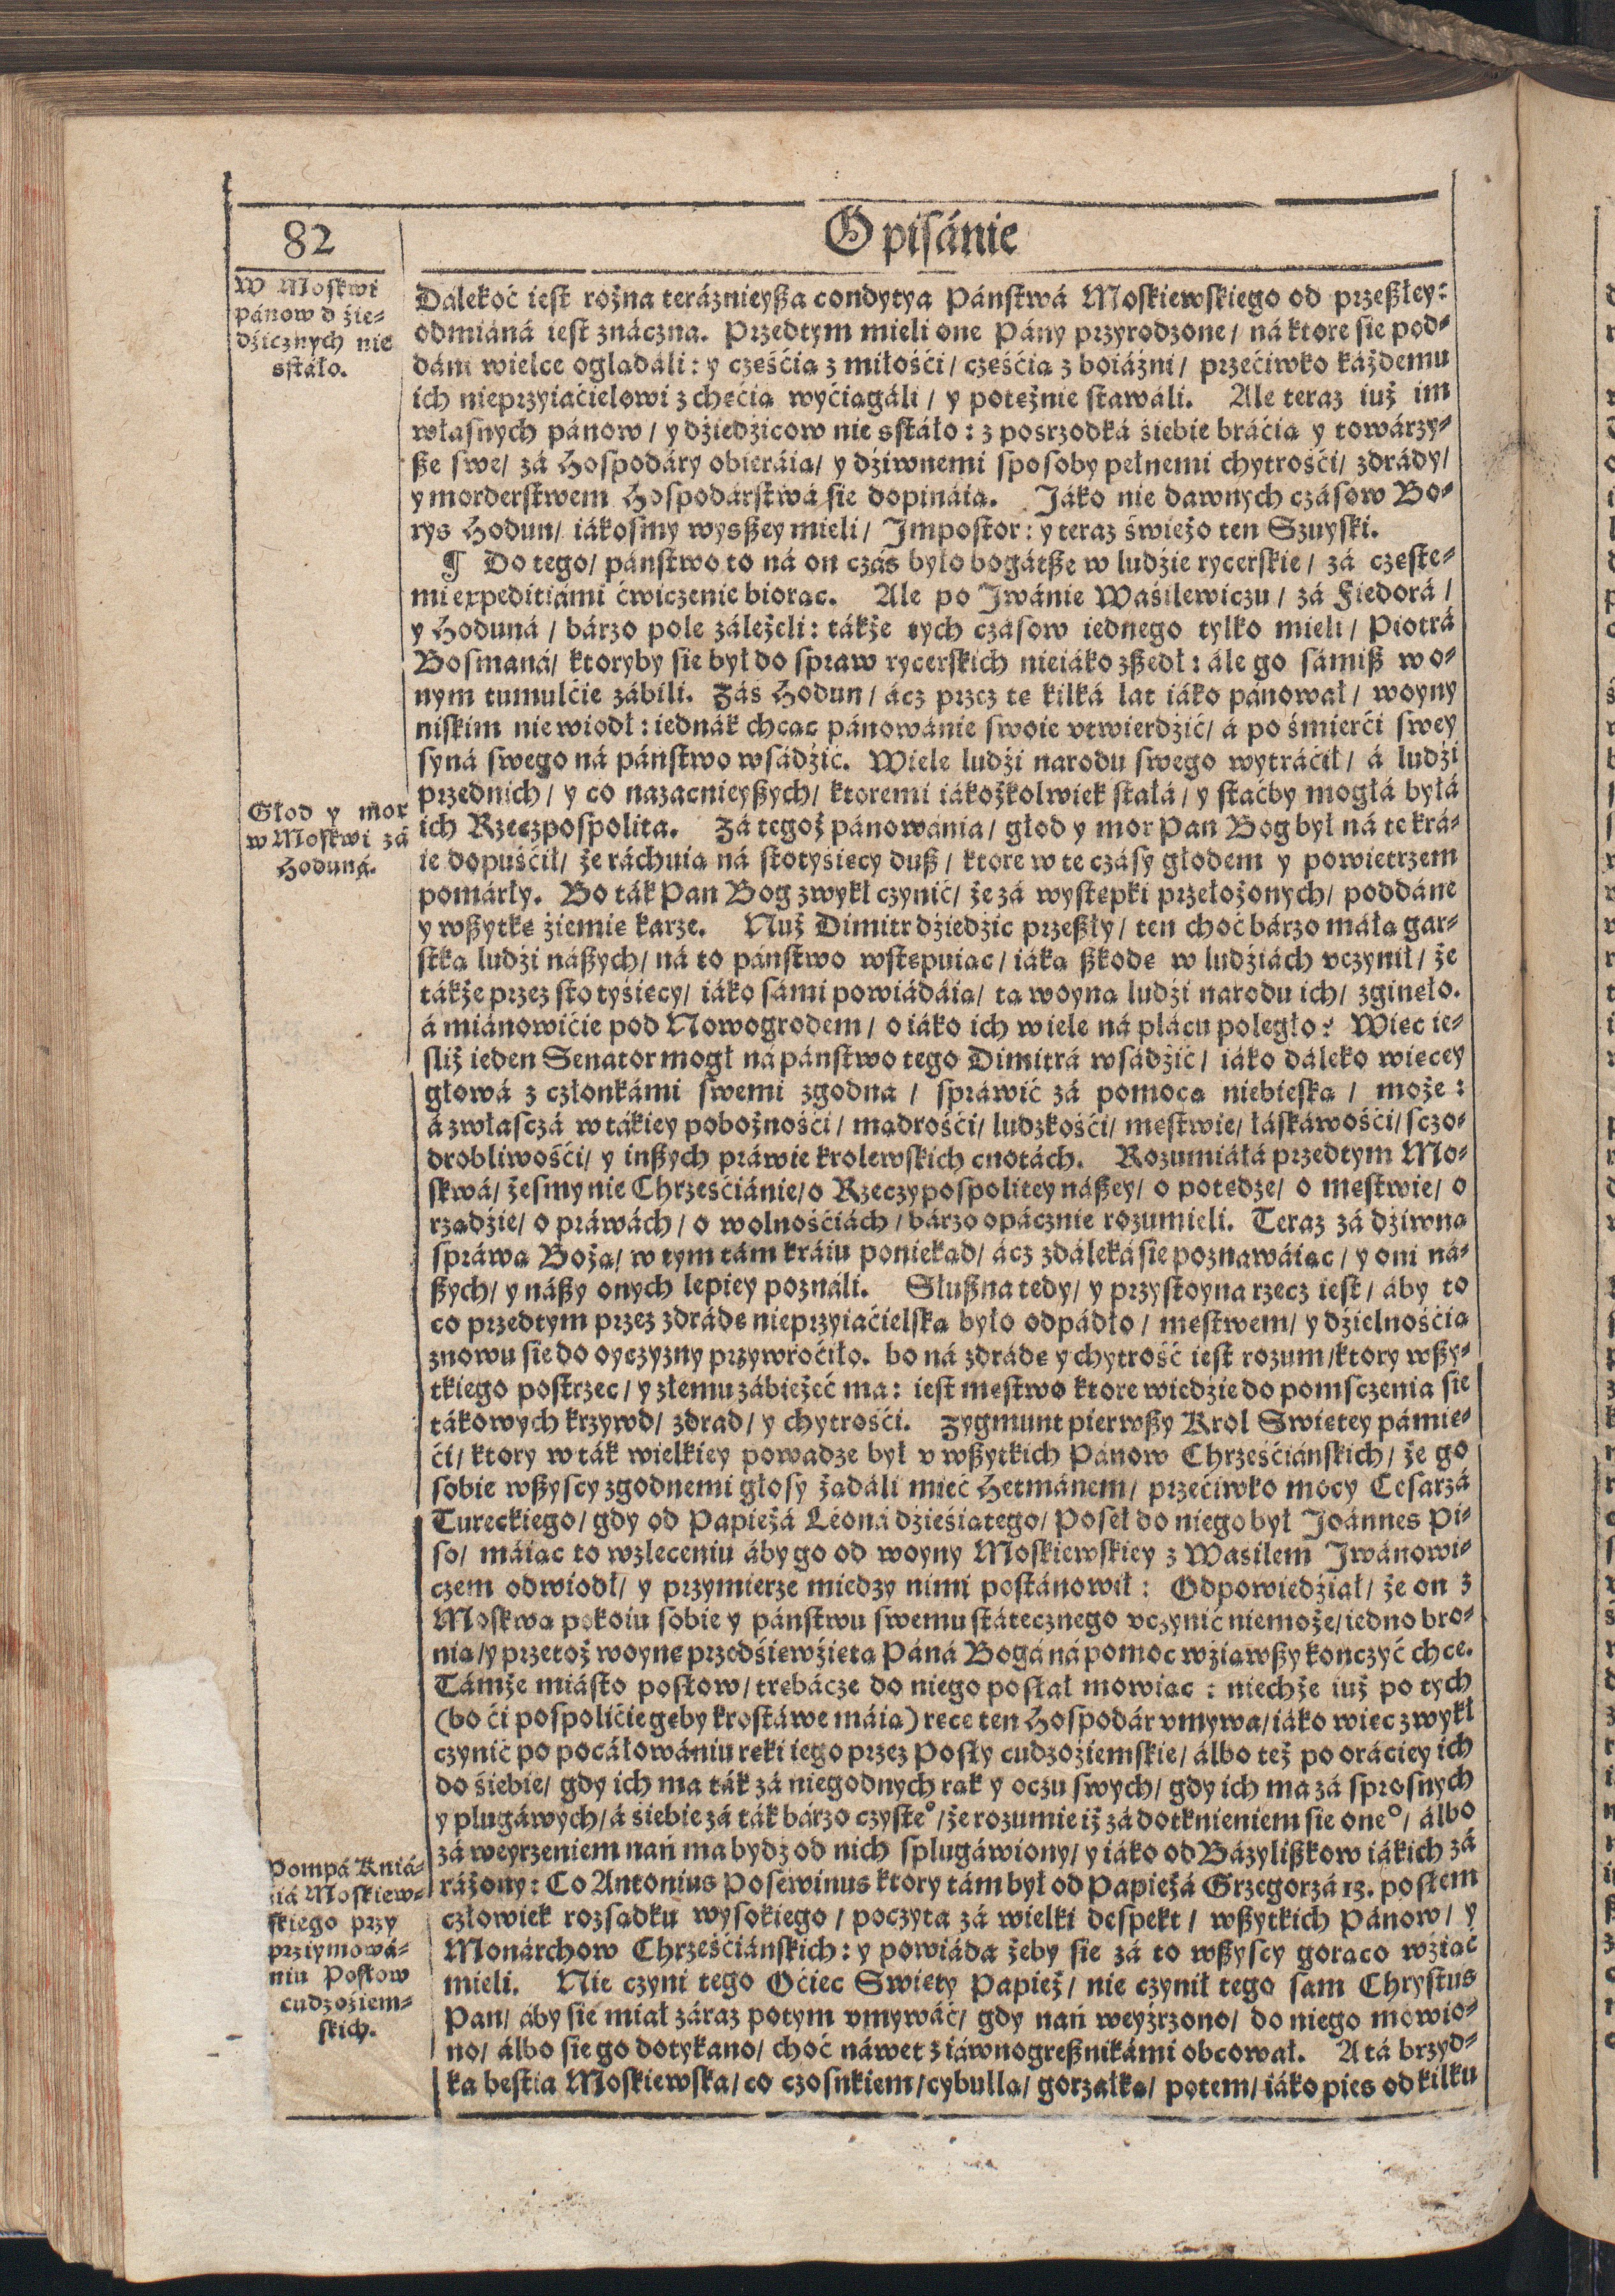 82
Opisánie
W Moskwi
pánow dźie-
dźicznych nie
sstáło.
Dalekoć iest rożna teráznieyßa condytya Páństwá Moskiewskiego od przeßłey:
odmiáná iest znáczna. Przedtym mieli one Pány przyrodzone/ ná ktore sie pod-
dáni wielce oglądáli: y częśćią z miłośći/ częśćią z boiáźni/ przećiwko káżdemu
ich nieprzyiaćielowi z chęćią wyćiągáli/ y potężnie stawáli. Ale teraz iuż im
własnych pánow/ y dźiedźicow nie sstáło: z posrzodká śiebie bráćia y towárzy-
ße swe/ zá Hospodáry obieráią/ y dźiwnemi sposoby pełnemi chytrośći/ zdrády/
y morderstwem Hospodárstwá sie dopináią. Jáko nie dawnych czásow Bo-
rys Hodun/ iákosmy wysßey mieli/ Impostor: y teraz świeżo ten Szuyski.
¶ Do tego/ páństwo to ná on czás było bogátße w ludźie rycerskie/ zá częste-
mi expeditiámi ćwiczenie biorąc. Ale po Iwánie Wáśilewiczu/ zá Fiedorá/
y Hoduná/ bárzo pole záleżeli: tákże tych czásow iednego tylko mieli/ Piotrá
Bosmaná/ ktoryby sie był do spraw rycerskich nieiáko zßedł: ále go sámiß w o-
nym tumulćie zábili. Záś Hodun/ ácz przez te kilká lat iáko pánował/ woyny
niskim nie wiodł: iednák chcąc pánowánie swoie vtwierdźić/ á po śmierći swey
syná swego ná páństwo wsádźić. Wiele ludźi narodu swego wytráćił/ á ludźi
przednich/ y co nazacnieyßych/ ktoremi iákożkolwiek stałá/ y staćby mogłá byłá
Głod y mor
w Moskwi zá
Hoduná.
ich Rzeczpospolita. Zá tegoż pánowánia/ głod y mor Pan Bog był ná te krá-
ie dopuśćił/ że ráchuią ná stotyśięcy duß/ ktore w te czásy głodem y powietrzem
pomárły. Bo ták Pan Bog zwykł czynić/ że zá wystepki przełożonych/ poddáne
y wßytkę źiemię karze. Nuż Dimitr dźiedźic przeßły/ ten choć bárzo máłą gar-
stką ludźi náßych/ ná to páństwo wstępuiąc/ iáką ßkodę w ludźiách vczynił/ że
tákże przez sto tyśięcy/ iáko sámi powiádáią/ tą woyną ludźi narodu ich/ zginęło.
á miánowićie pod Nowogrodem/ o iáko ich wiele ná plácu poległo? Więc ie-
śliż ieden Senator mogł ná páństwo tego Dimitrá wsádźić/ iáko dáleko więcey
głowá z członkámi swemi zgodna/ spráwić zá pomocą niebieską/ może:
á zwłasczá w tákiey pobożnośći/ mądrośći/ ludzkośći/ męstwie/ łáskáwośći/ sczo-
drobliwośći/ y inßych práwie krolewskich cnotách. Rozumiáłá przedtym Mo-
skwá/ żesmy nie Chrześćiánie/ o Rzeczypospolitey náßey/ o potędze/ o męstwie/ o
rządźie/ o práwách/ o wolnośćiách/ bárzo opácznie rozumieli. Teraz zá dźiwną
spráwą Bożą/ w tym tám kráiu poniekąd/ ácz zdáleká sie poznawáiąc/ y oni ná-
ßych/ y náßy onych lepiey poználi. Słußna tedy/ y przystoyna rzecz iest/ áby to
co przedtym przez zdrádę nieprzyiaćielską było odpádło/ męstwem/ y dźielnośćią
znowu sie do oyczyzny przywroćiło. bo ná zdrádę y chytrość iest rozum/ ktory wßy-
tkiego postrzec/ y złemu zábieżeć ma: iest męstwo ktore wiedźie do pomsczenia sie
tákowych krzywd/ zdrad/ y chytrośći. Zygmunt pierwßy Krol Swiętey pámię-
ći/ ktory w ták wielkiey powadze był v wßytkich Pánow Chrześćiáńskich/ że go
sobie wßyscy zgodnemi głosy żądáli mieć Hetmánem/ przećiwko mocy Cesarzá
Tureckiego/ gdy od Papieżá Leoná dźieśiątego/ Poseł do niego był Joánnes Pi-
so/ máiąc to w zleceniu áby go od woyny Moskiewskiey z Wáśilem Iwánowi-
czem odwiodł/ y przymierze miedzy nimi postánowił: Odpowiedźiał/ że on z
Moskwą pokoiu sobie y páństwu swemu státecznego vczynić niemoże/ iedno bro-
nią/ y przetoż woynę przedśięwźiętą Páná Bogá ná pomoc wźiąwßy kończyć chce.
Támże miásto posłow/ trębácze do niego posłał mowiąc: niechże iuż po tych
(bo ći pospolićie gęby krostáwe máią) ręce ten Hospodár vmywa/ iáko więc zwykł
czynić po pocáłowániu ręki iego przez Posły cudzoźiemskie/ álbo też po oráciey ich
do śiebie/ gdy ich ma ták zá niegodnych rąk y oczu swych/ gdy ich ma zá sprosnych
y plugáwych/ á śiebie zá ták bárzo czyste°/ że rozumie iż zá dotknieniem sie one°/ álbo
zá weyrzeniem nań ma bydź od nich splugáwiony/ y iáko od Bázylißkow iákich zá
Pompá Kniá-
źiá Moskiew-
skiego przy
prziymowá-
niu Posłow
cudzoźiem-
skich.
ráżony: Co Antonius Posewinus ktory tám był od Papieżá Grzegorzá 13. posłem
człowiek rozsądku wysokiego/ poczyta zá wielki despekt/ wßytkich Pánow/ y
Monárchow Chrześćiáńskich: y powiáda żeby sie zá to wßyscy gorąco wźiąć
mieli. Nie czyni tego Oćiec Swięty Papież/ nie czynił tego sam Chrystus
Pan/ áby sie miał záraz potym vmywáć/ gdy nań weyźrzono/ do niego mowio-
no/ álbo sie go dotykano/ choć náwet z iáwnogreßnikámi obcował. A tá brzyd-
ka bestia Moskiewska/ co czosnkiem/ cybullą/ gorzałką/ potem/ iáko pies od kilku